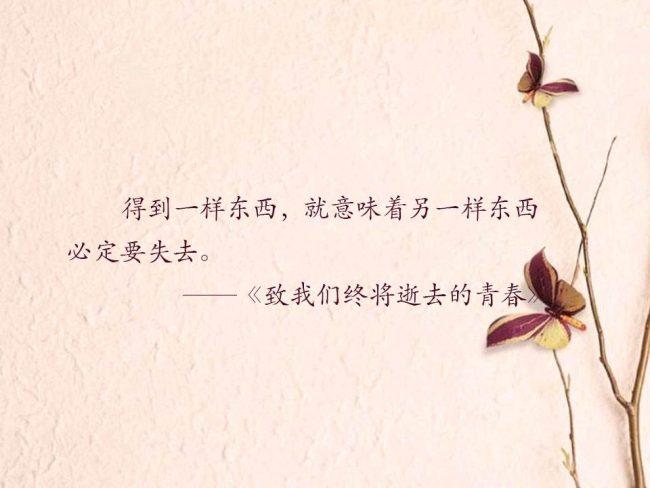 得到一样东西，就意味着另一样东西
必定要失去。
——《致我们终将逝去的青春》